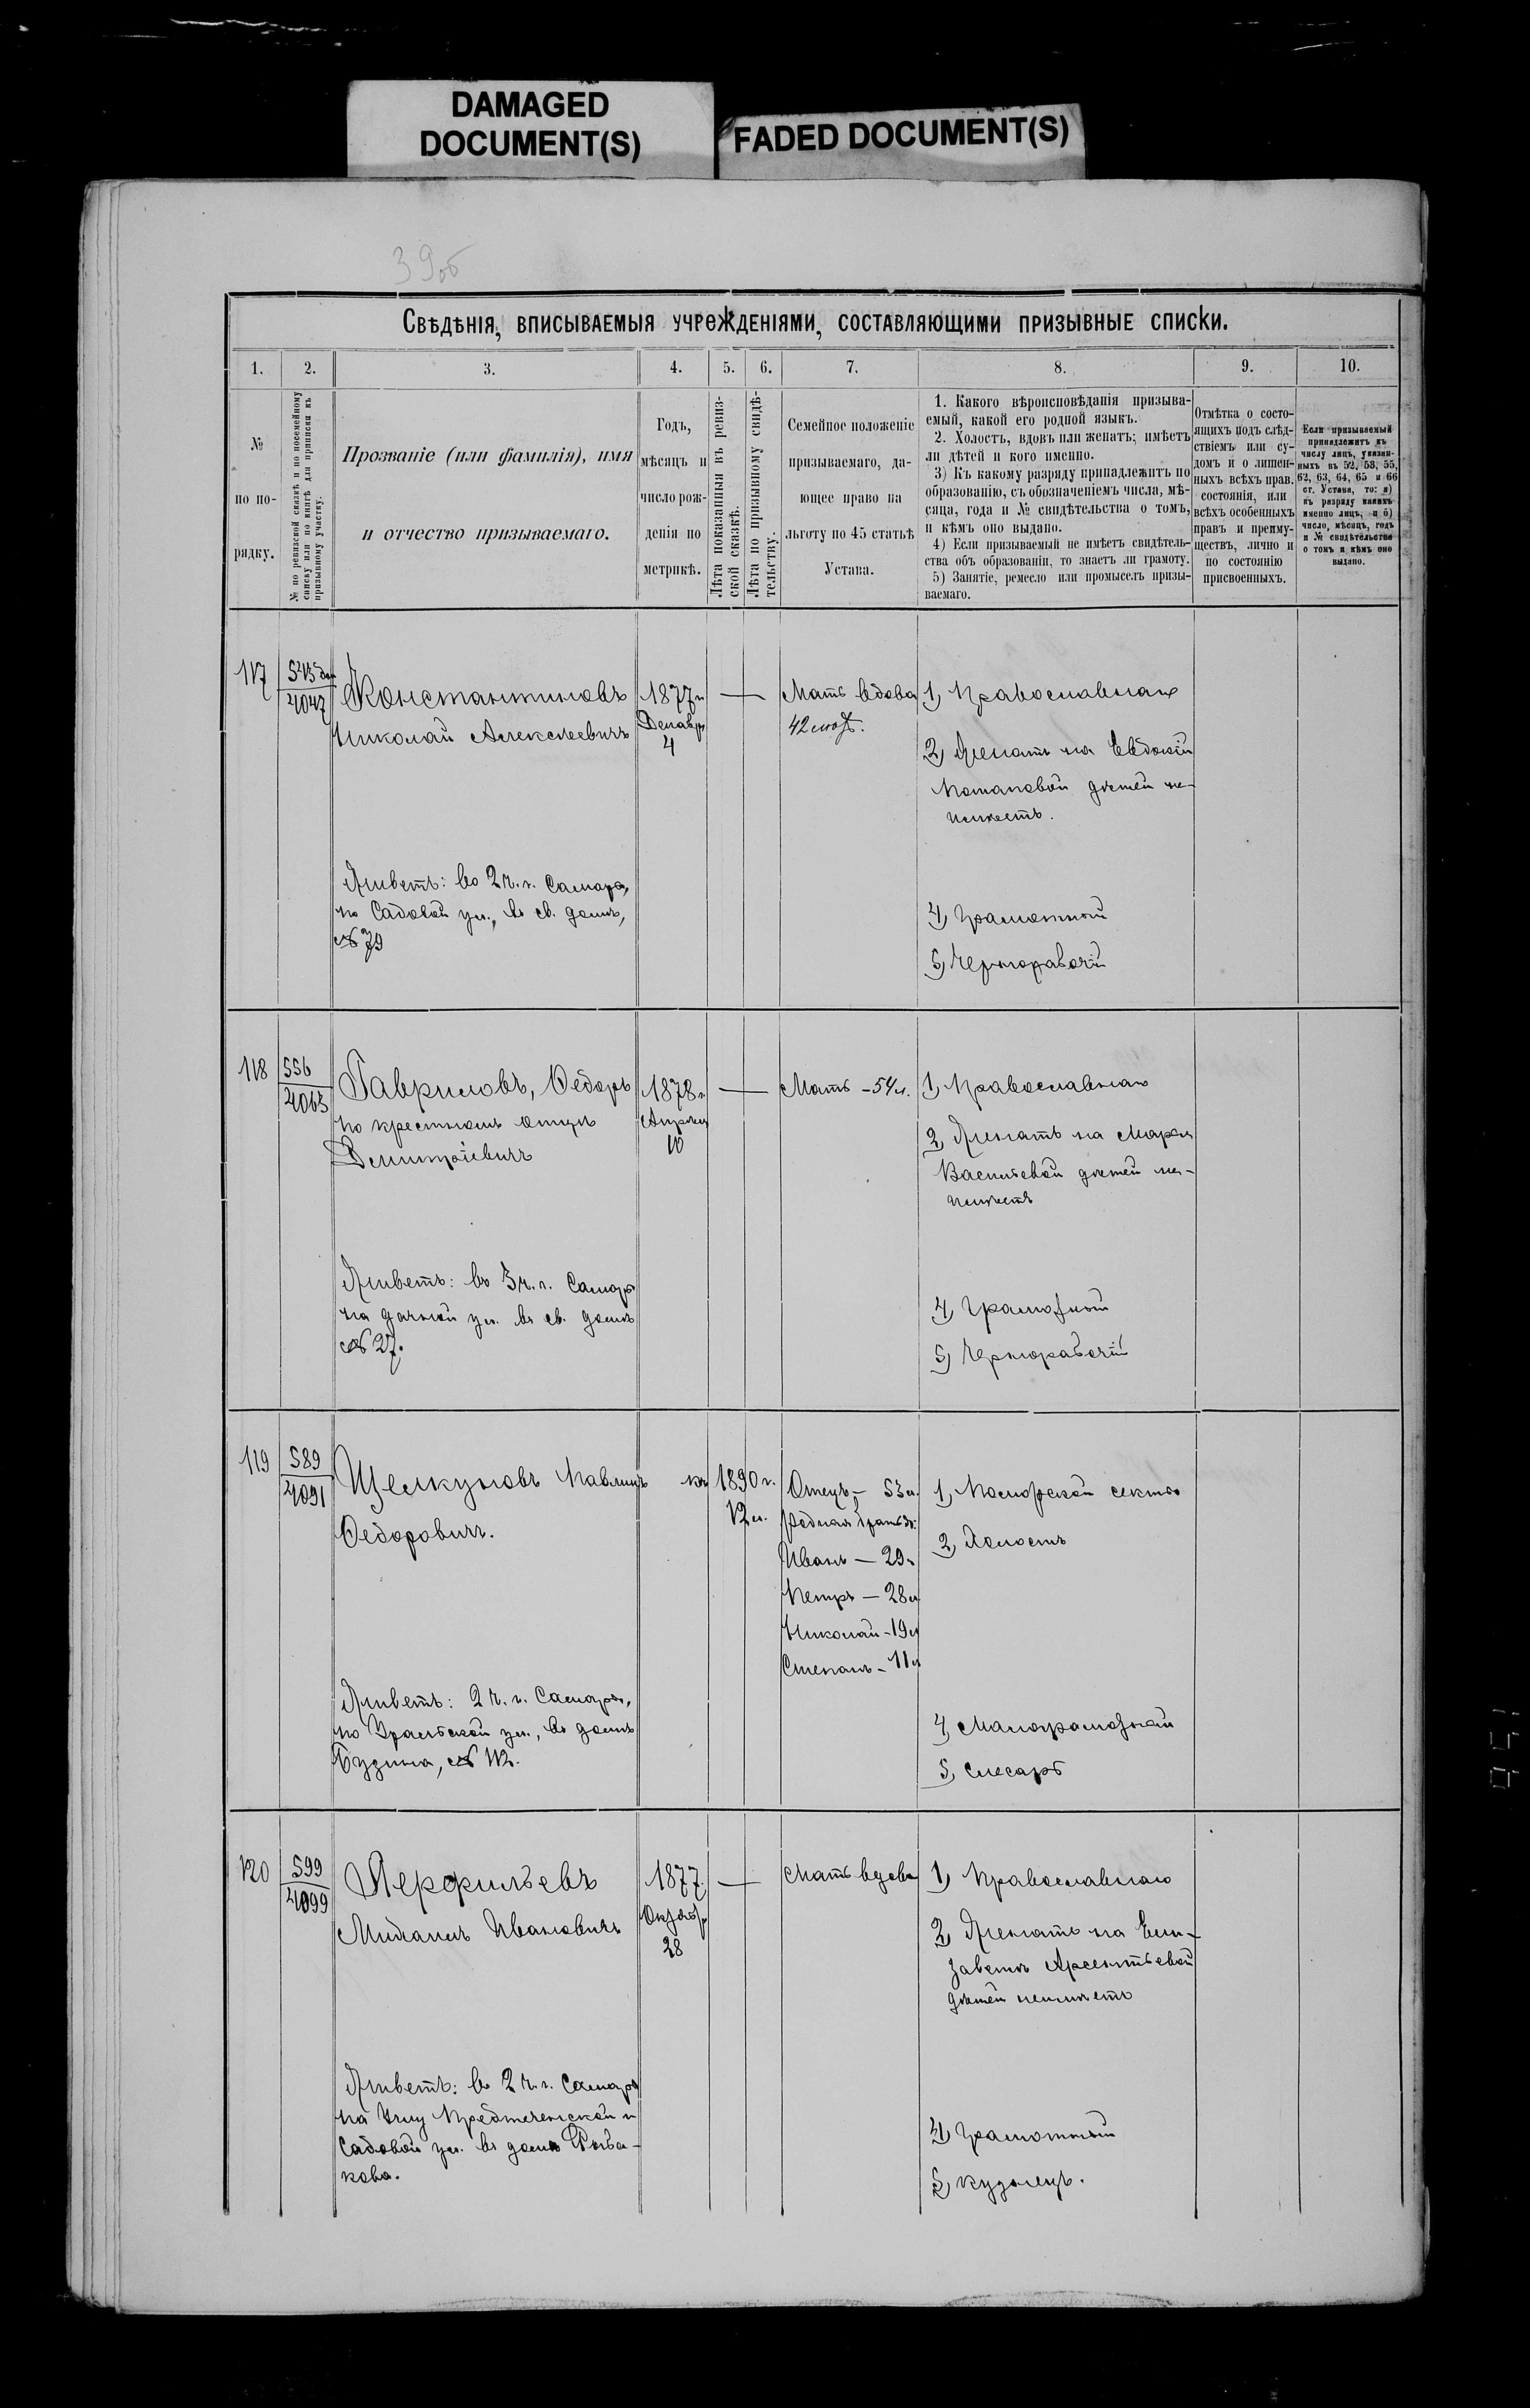 DAMAGED
DOCUMENT(S)
FADED DOCUMENT(S)
39об
Свѣдѣнія, вписываемыя учрежденіями, составляющими призывные списки.
1.
2.
3.
4.
5.
6.
7.
8.
9.
10.
№
по по-
рядку.
№ по ревизской сказкѣ и по посемейному
списку или по книгѣ для приписки къ
призывному участку.
Прозваніе (или фамилія), имя
и отчество призываемаго.
Годъ,
мѣсяцъ и
число рож-
денія по
метрикѣ.
Лѣта показанныя въ ревиз-
ской сказкѣ.
Лѣта по призывному свидѣ-
тельству.
Семейное положеніе
призываемаго, да-
ющее право на
льготу по 45 статьѣ
Устава.
1. Какого вѣроисповѣданія призыва-
емый, какой его родной языкъ.
2. Холостъ, вдовъ или женатъ; имѣетъ
ли дѣтей и кого именно.
3) Къ какому разряду принадлежитъ по
образованію, съ обозначеніемъ числа, мѣ-
сяца, года и № свидѣтельства о томъ,
и кѣмъ оно выдано.
4) Если призываемый не имѣетъ свидѣтель-
ства объ образованіи, то знаетъ ли грамоту.
5) Занятіе, ремесло или промыселъ призы-
ваемаго.
Отмѣтка о состо-
ящихъ подъ слѣд-
ствіемъ или су-
домъ и о лишен-
ныхъ всѣхъ прав.
состоянія, или
всѣхъ особенныхъ
правъ и преиму-
ществъ, лично и
по состоянію
присвоенныхъ.
Если призываемый
принадлежитъ къ
числу лицъ, указан-
ныхъ въ 52, 53, 55,
62, 63, 64, 65 и 66
ст. Устава, то: а)
къ разряду какихъ
именно лицъ, и б)
число, мѣсяцъ, годъ
и № свидѣтельства
о томъ и кѣмъ оно
выдано.
117
4047
Константиновъ
Николай Алексеевичъ
1877г
Декабр
4
Мать вдова
42 лѣтъ.
1) Православнаго
2) Женатъ на Евдокіи
Потаповой дѣтей не-
имѣетъ.
Живетъ: во 2 ч. г. Самары,
по Садовой ул., въ св. домѣ,
№ 79
4) Грамотный
5) Чернорабочій
118
556
4063
Гавриловъ, Ѳедоръ
по крестномъ отцѣ
Дмитріевичъ
1878г
Апрѣля
10
Мать - 54 л.
1) Православнаго
2) Женатъ на Марѳѣ
Васильевой дѣтей не-
имѣетъ
Живетъ: въ 3 ч. г. Самары
на дачной ул. въ св. домѣ
№ 27.
4) Грамотный
5) Чернорабочій
119
589
4091
Щелкуновъ Павлинъ
Ѳедоровичъ.
къ 1890 г.
12 л.
Отецъ - 53 л.
Родныя братья:
Иванъ - 29л
Петръ - 28л
Николай - 19л
Степанъ - 11л
1) Поморской секты
2) Холостъ
Живетъ: 2 ч. г. Самары,
по Уральской ул., въ домѣ
Бузина, № 112.
4) Малограмотный
5) Слесарь
120
599
4099
Перфильевъ
Михаилъ Ивановичъ
1877.
Октябр
28
Мать вдова
1) Православнаго
2) Женатъ на Ели-
заветѣ Арсентьевой
дѣтей неимѣетъ
Живетъ: во 2 ч. г. Самары
на углу Предтеченской и
Садовой ул. въ домѣ Рыба-
кова.
4) Грамотный
5) Кузнецъ.